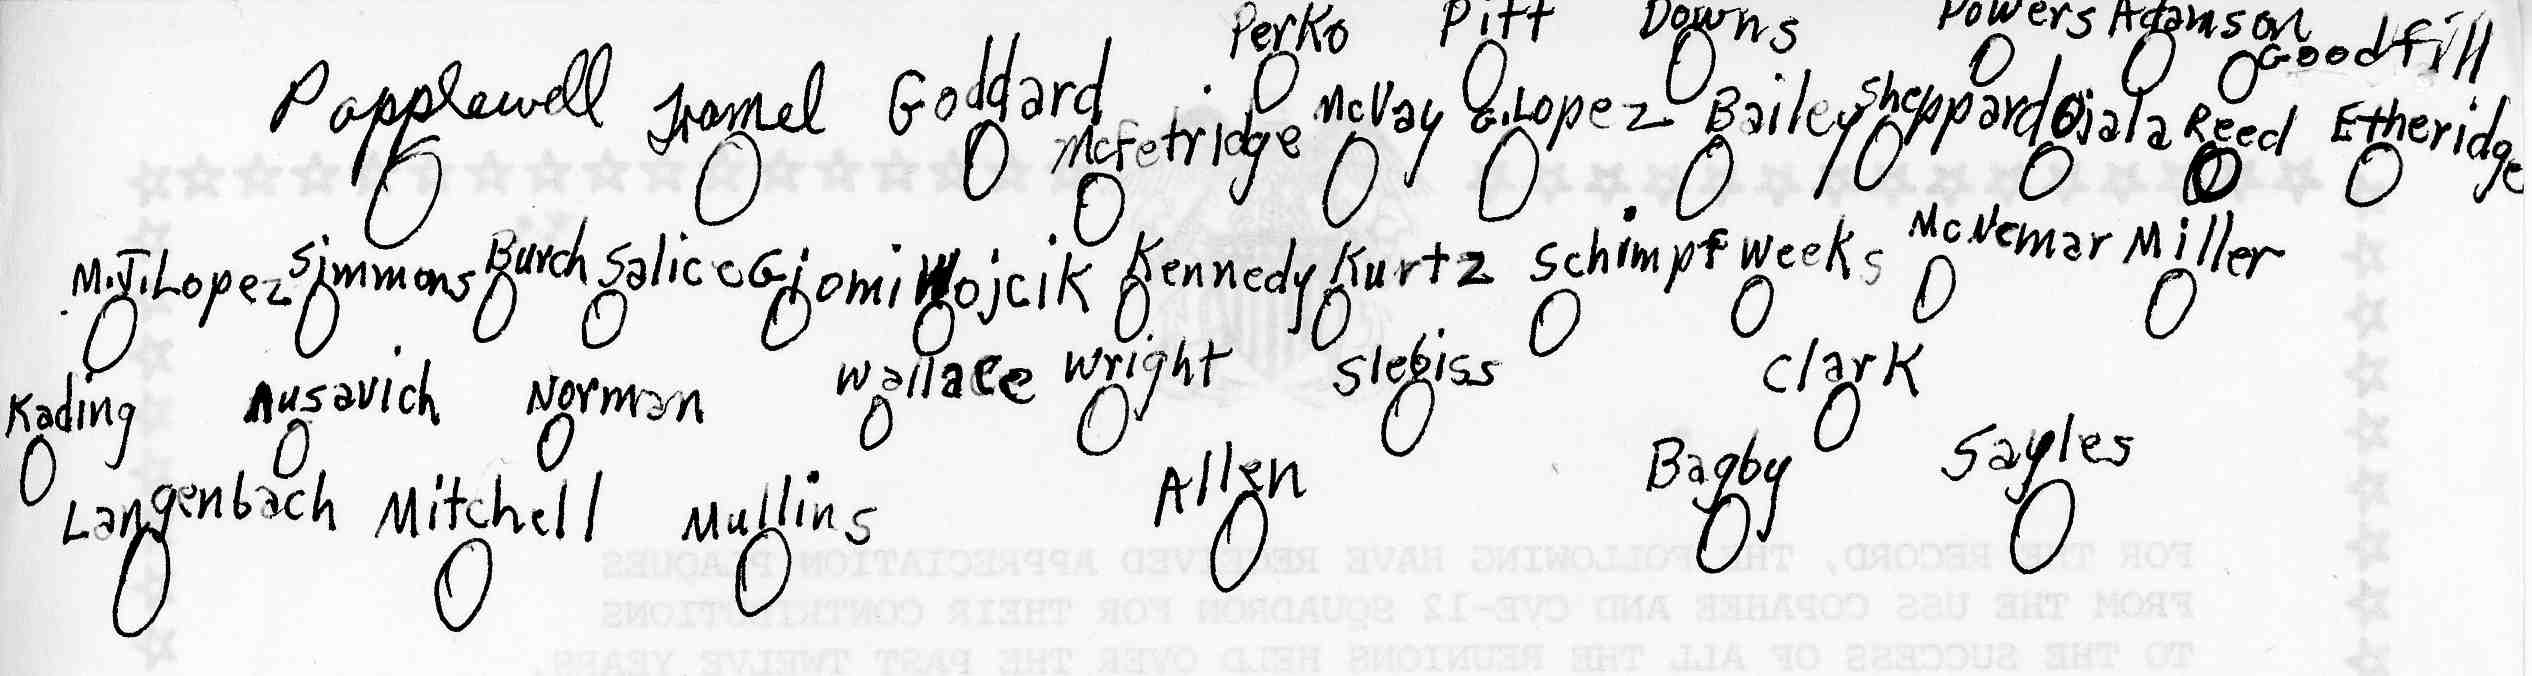 Perko Pitt Downs Powers Adamson Goodfill
Popplewell Tramel Goddard McFetridge McVay G.Lopez Bailey Sheppard Ojala Reed Etheridge
M.J.Lopez Simmons Burch Salice Giomi Wojcik Kennedy Kurtz Schimpf Weeks McNemar Miller
Kading Ausavich Norman Wallace Wright Slebiss Clark
Langenbach Mitchell Mullins Allen Bagby Sayles
FOR THE RECORD, THE FOLLOWING HAVE RECEIVED APPRECIATION PLAQUES
FROM THE USS COPAHEE AND CVE-12 SQUADRON FOR THEIR CONTRIBUTIONS
TO THE SUCCESS OF ALL THE REUNIONS HELD OVER THE PAST TWELVE YEARS.